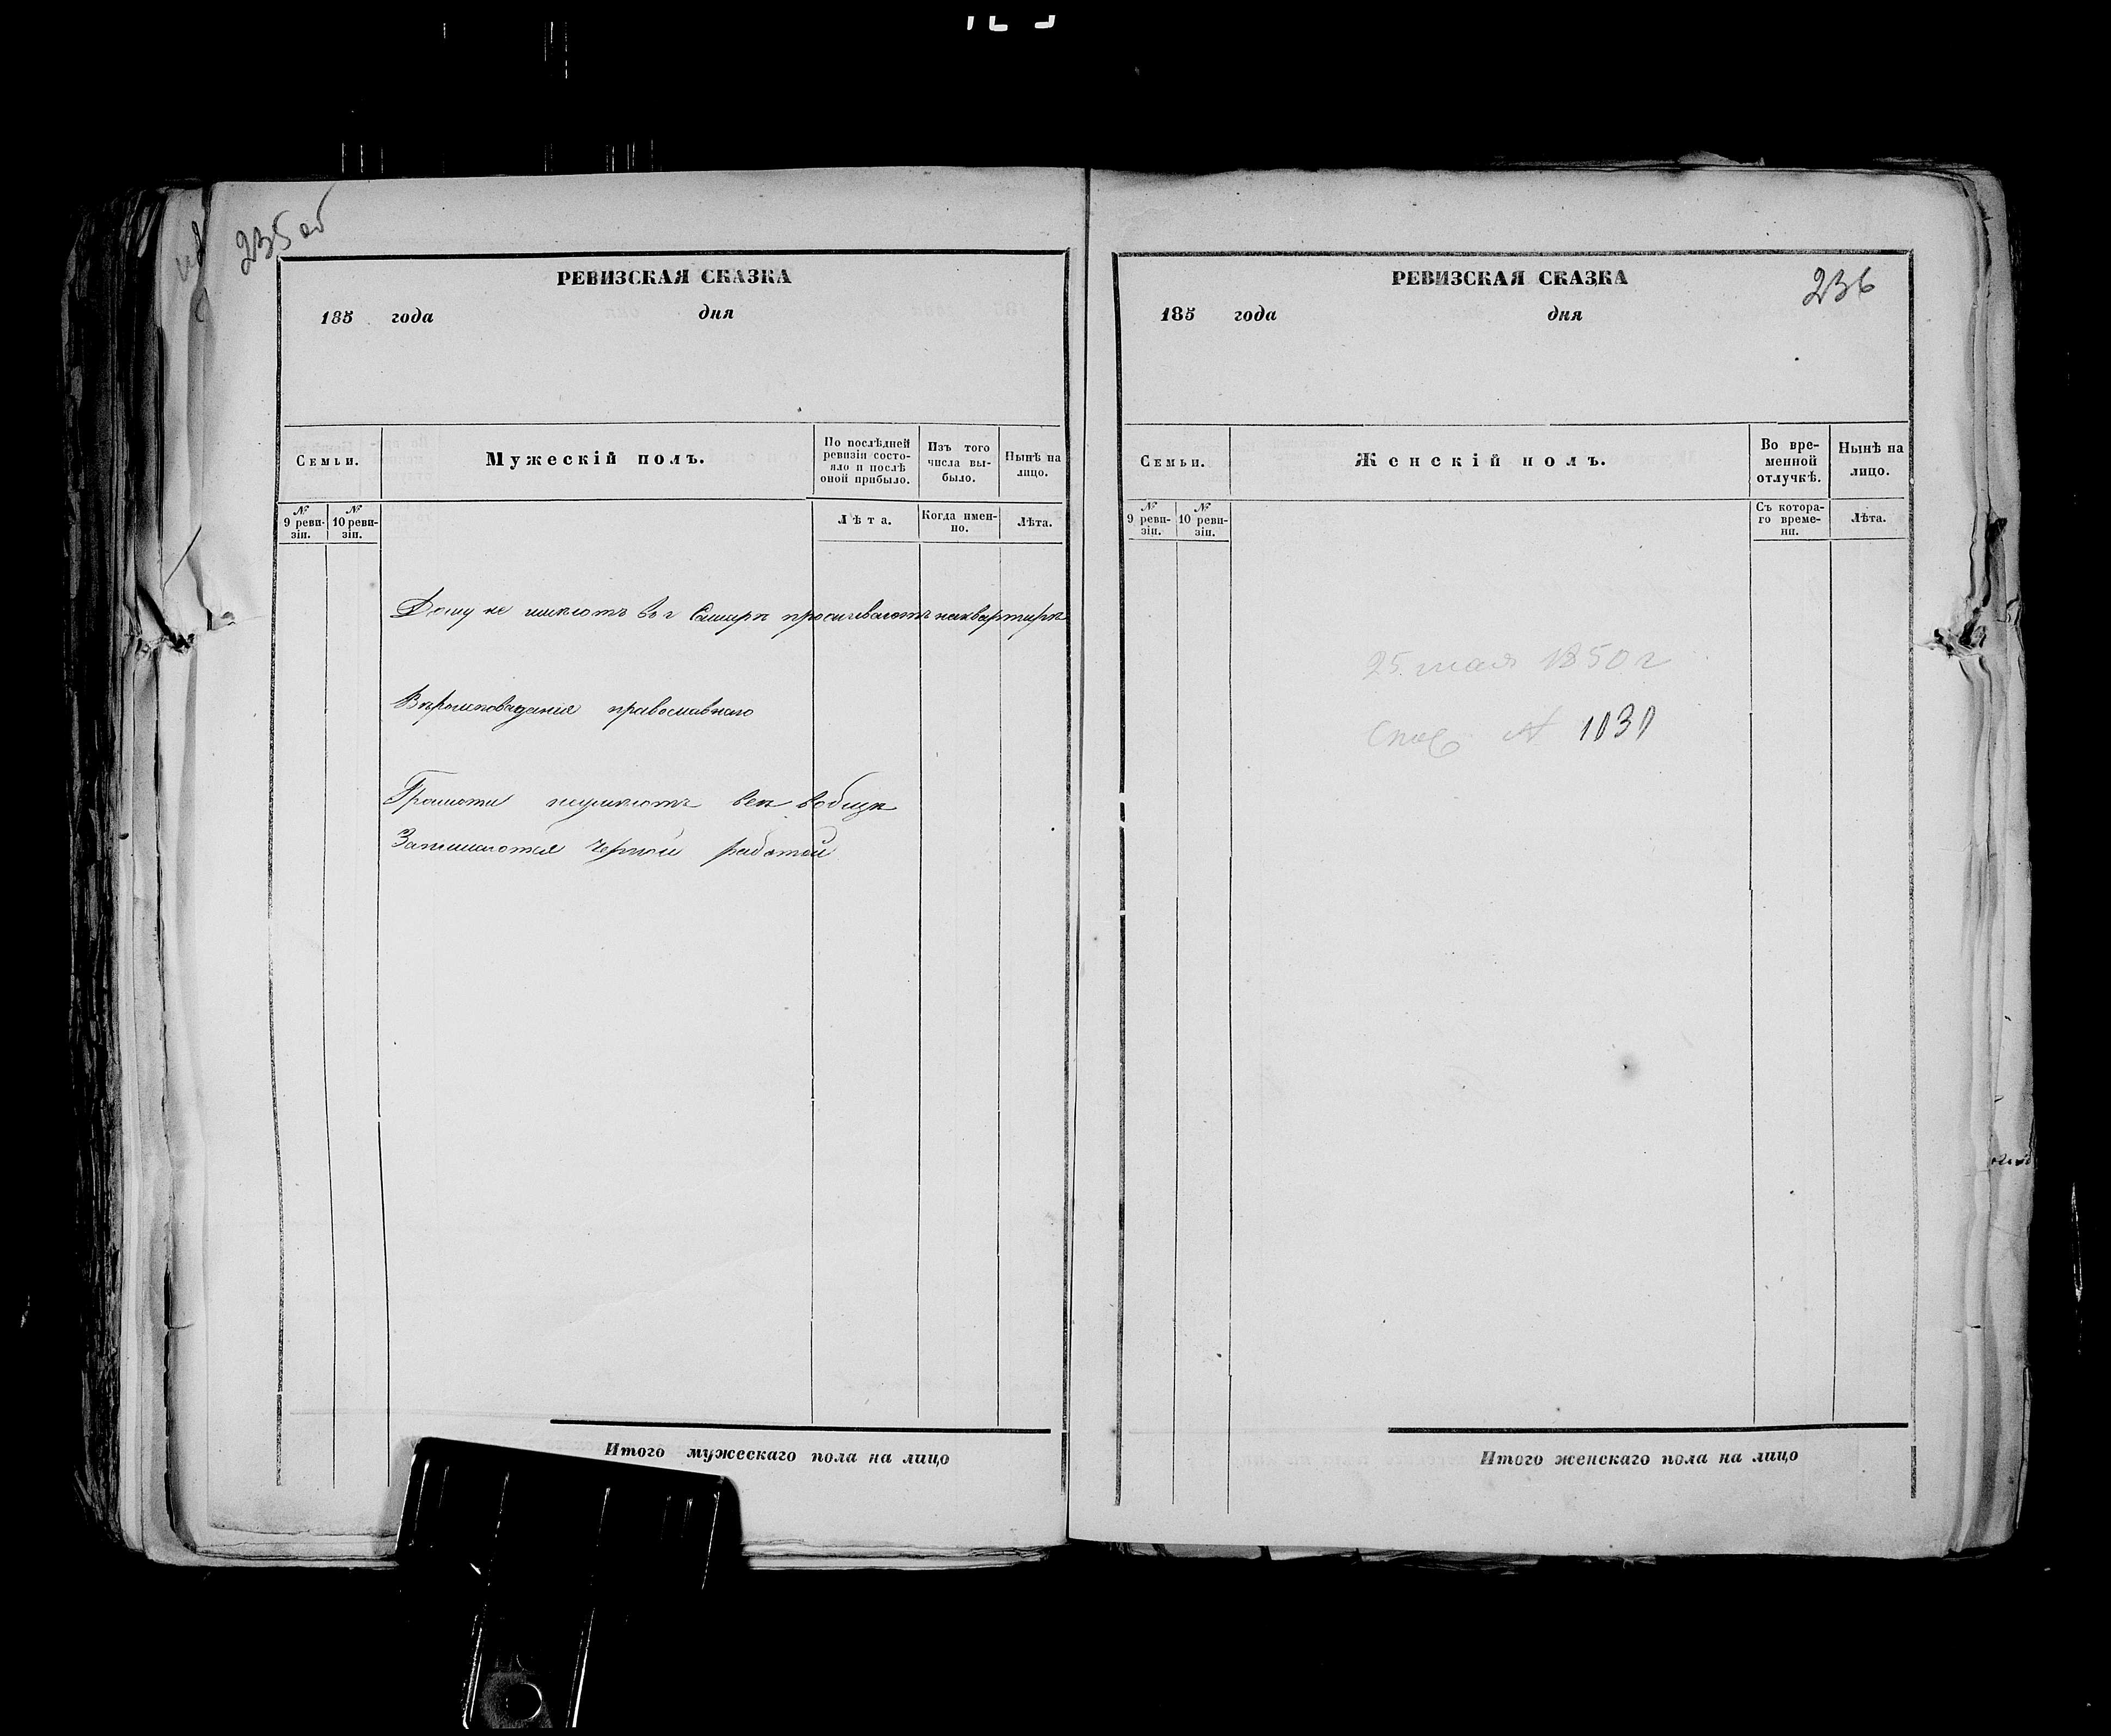 235 об
РЕВИЗСКАЯ СКАЗКА
185 года дня
Семьи.
Мужескій полъ.
По послѣдней ревизіи состояло и послѣ оной прибыло.
Изъ того числа выбыло.
Нынѣ на лицо.
№ 9 ревизіи.
№ 10 ревизіи.
Лѣта.
Когда именно.
Лѣта.
Дому не имѣютъ во г проживаютъ на квартирѣ
Вѣроисповеданія православнаго
Грамоти неумѣютъ всѣ вобще
Занимаются черной работой
Итого мужескаго пола на лицо
236
РЕВИЗСКАЯ СКАЗКА
185 года дня
Семьи.
Женскій полъ.
Во временной отлучкѣ.
Нынѣ на лицо.
№ 9 ревизіи.
№ 10 ревизіи.
Съ котораго времени.
Лѣта.
25 мая 1850 г
№ 1030
Итого женскаго пола на лицо